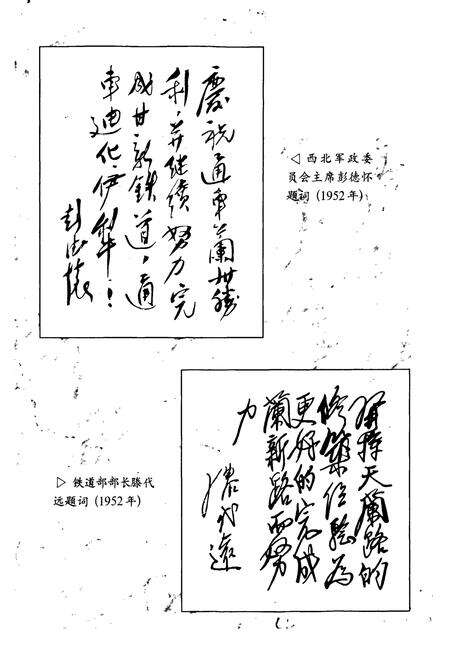 慶祝通車蘭州勝
利，并继续努力完
成甘新鉄道，通
車迪化、伊犁！
彭德懷
◁ 西北军政委
员会主席彭德怀
题词 (1952年)
发揮天蘭路的
修築经驗为
更好的完成
蘭新路而努
力
滕代遠
▷ 铁道部部长滕代
远题词 (1952年)